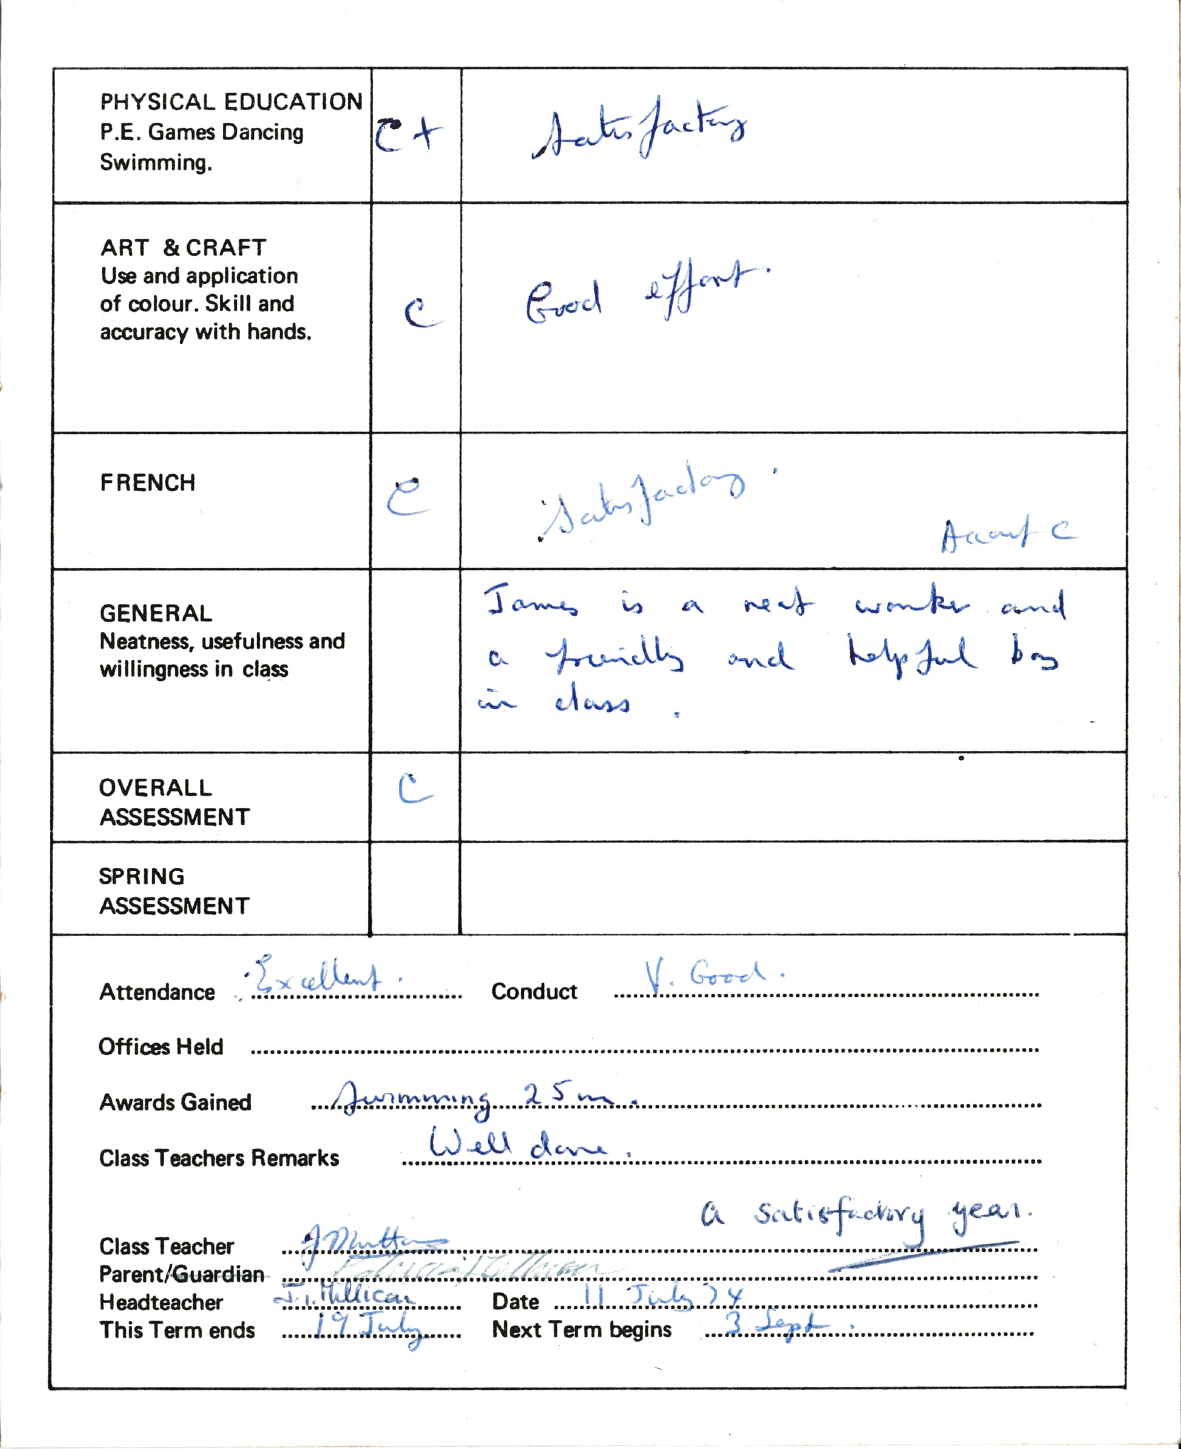 PHYSICAL EDUCATION
P.E. Games Dancing
Swimming.
C+
Satisfactory
ART & CRAFT
Use and application
of colour. Skill and
accuracy with hands.
C
Good effort.
FRENCH
C
Satisfactory.
C
GENERAL
Neatness, usefulness and
willingness in class
James is a neat worker and
a friendly and helpful boy
in class.
OVERALL
ASSESSMENT
C
SPRING
ASSESSMENT
Attendance Excellent. Conduct V. Good.
Offices Held
Awards Gained Swimming 25m.
Class Teachers Remarks Well done.
A satisfactory year.
Class Teacher
Parent/Guardian
Headteacher J.I. Millican Date 11 July 74
This Term ends 19 July Next Term begins 3 Sept.